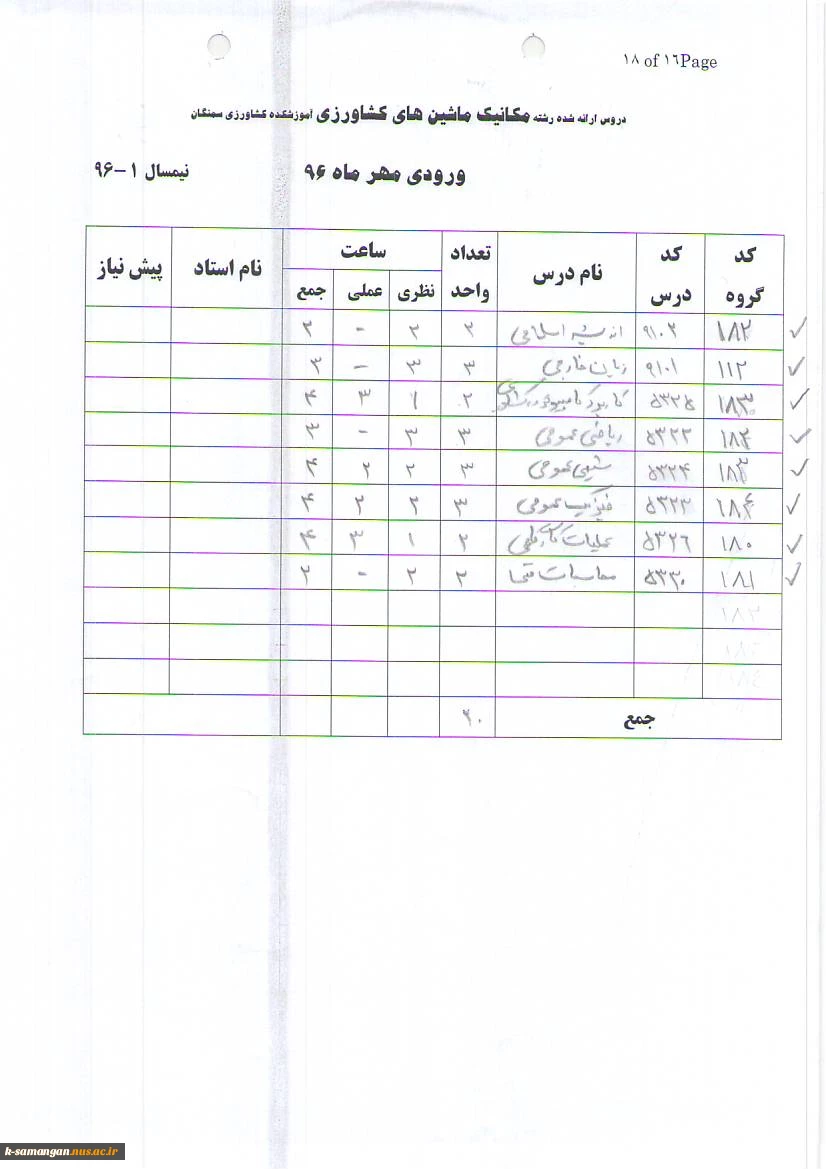 ۱۸ of ۱۶Page
دروس ارائه شده رشته مکانیک ماشین های کشاورزی آموزشکده کشاورزی سمنگان
ورودی مهر ماه ۹۶ نیمسال ۱-۹۶
کد گروه کد درس نام درس تعداد واحد ساعت نام استاد پیش نیاز
نظری عملی جمع
۱۸۲ ۹۱۰۲ اندیشه اسلامی ۲ ۲ - ۲
۱۱۲ ۹۱۰۱ زبان خارجی ۳ ۳ - ۳
۱۸۳ ۵۳۲۵ کاربرد کامپیوتر در کشاورزی ۲ ۱ ۳ ۴
۱۸۲ ۵۳۲۲ ریاضی عمومی ۳ ۳ - ۳
۱۸۳ ۵۳۲۴ شیمی عمومی ۳ ۲ ۲ ۴
۱۸۴ ۵۳۲۳ فیزیک عمومی ۳ ۲ ۲ ۴
۱۸۰ ۵۳۲۶ عملیات کارگاهی ۲ ۱ ۳ ۴
۱۸۱ ۵۳۳۰ محاسبات فنی ۲ ۲ - ۲
۱۸۲
جمع ۲۰
k-samangan.nus.ac.ir